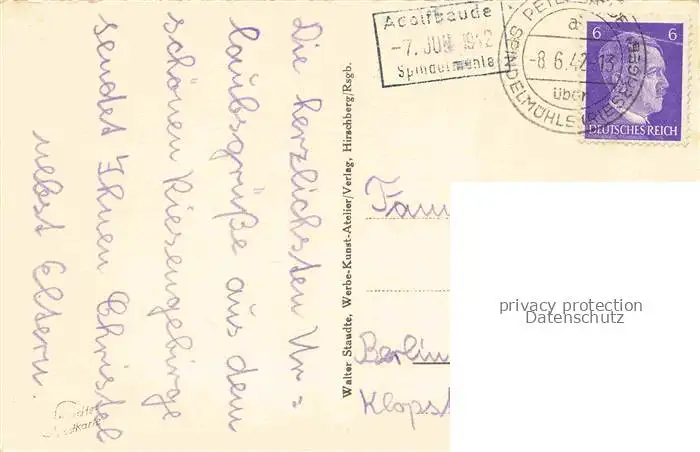 Adolfbaude
-7. JUN 1942
Spindelmühle
PETER
a
-8.6.42-13
über
SPINDELMÜHLE (RIESENGEB
6 6
DEUTSCHES REICH
Die herzlichsten Ur=
laubsgrüße aus dem
schönen Riesengebirge
sendet Ihnen Christel
nebst Eltern.
Walter Staudte, Werbe-Kunst-Atelier/Verlag, Hirschberg/Rsgb.
Fam
Berlin
Klopst
privacy protection
Datenschutz